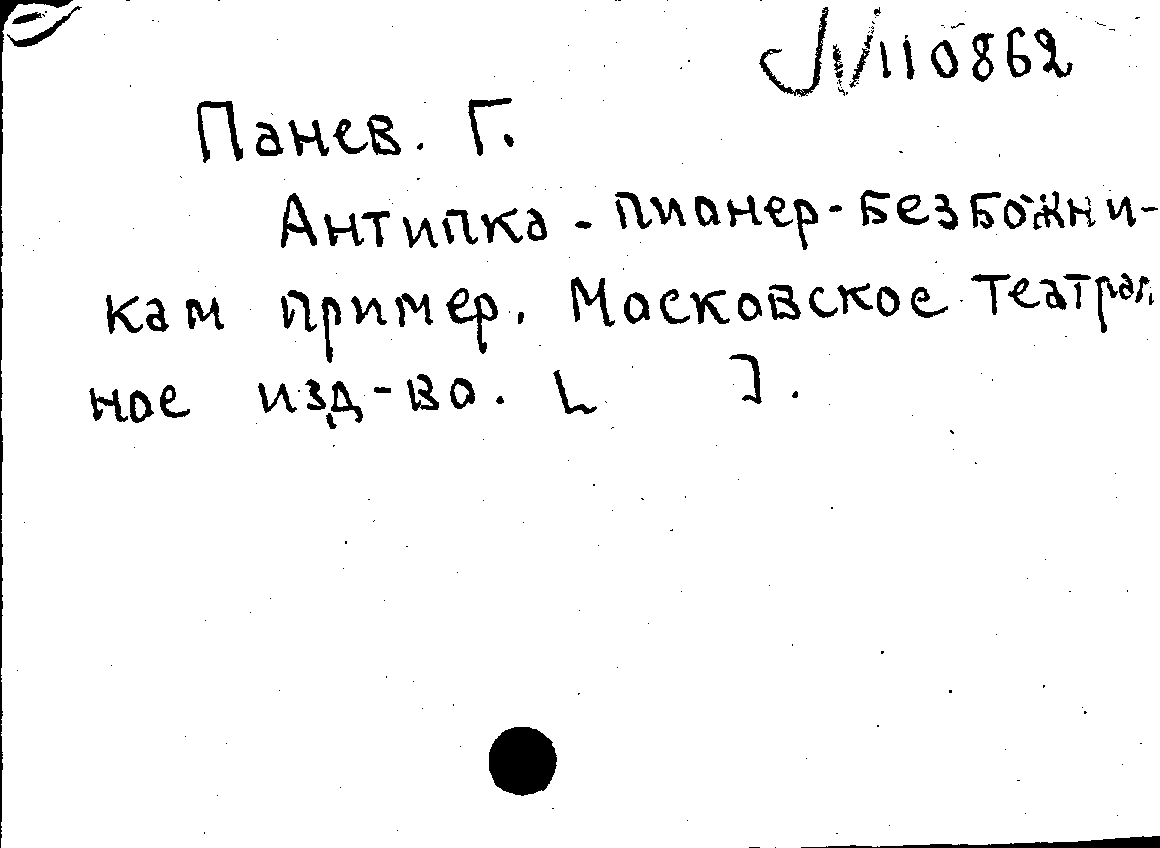 №110862
Панев. Г.
Антипка - пианер-безбожни-
кам пример. Московское театрал
ное изд-во. [ ].